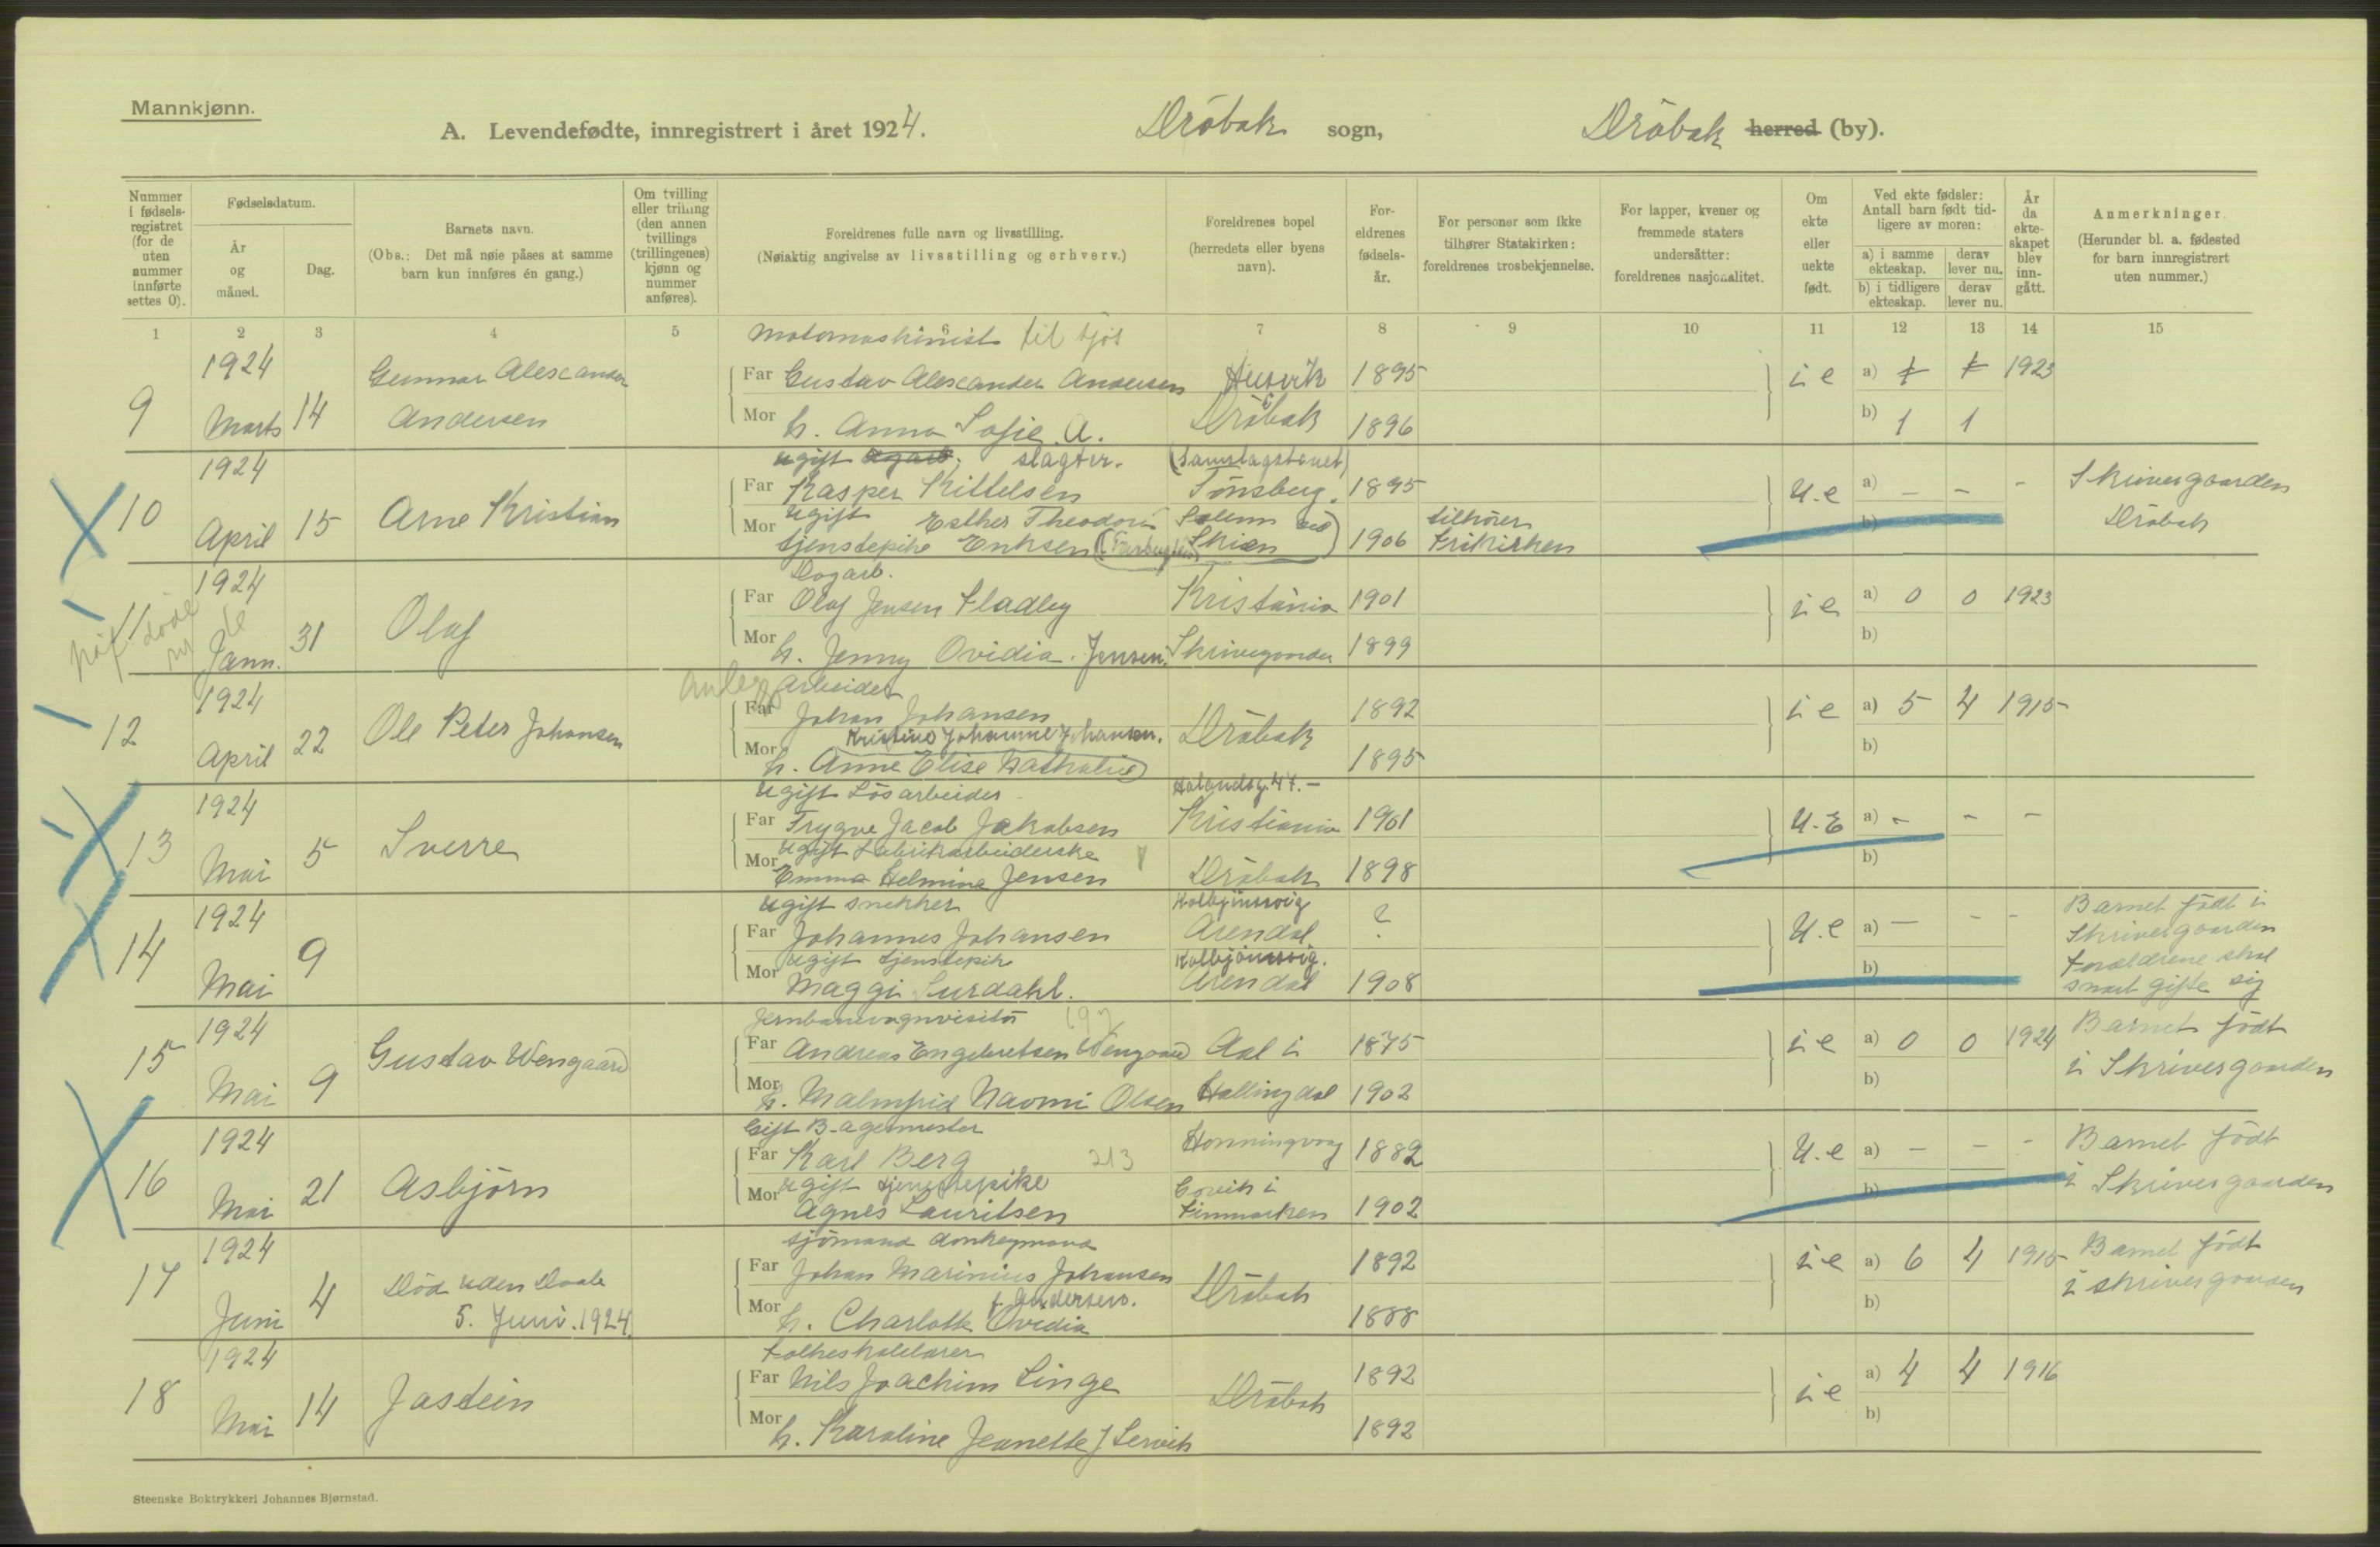 Mannkjønn.
A. Levendefødte, innregistrert i året 1924. Dröbak sogn, Dröbak herred (by).
Nummer i fødsels-registret (for de uten nummer innførte settes 0).
Fødselsdatum.
År og måned.
Dag.
Barnets navn.
(Obs.: Det må nøie påses at samme barn kun innføres én gang.)
Om tvilling eller trilling (den annen tvillings (trillingenes) kjønn og nummer anføres).
Foreldrenes fulle navn og livsstilling.
(Nøiaktig angivelse av livsstilling og erhverv.)
Foreldrenes bopel (herredets eller byens navn).
For-eldrenes fødsels-år.
For personer som ikke tilhører Statskirken: foreldrenes trosbekjennelse.
For lapper, kvener og fremmede staters undersåtter: foreldrenes nasjonalitet.
Om ekte eller uekte født.
Ved ekte fødsler: Antall barn født tid-ligere av moren:
a) i samme ekteskap.
derav lever nu.
b) i tidligere ekteskap.
derav lever nu.
År da ekte-skapet blev inn-gått.
Anmerkninger.
(Herunder bl. a. fødested for barn innregistrert uten nummer.)
1 2 3 4 5 6 7 8 9 10 11 12 13 14 15
Motormaskinist til sjös
9 1924 Marts 14 Gunnar Alexander Andersen
Far Gustav Alexander Andersen Husvik 1895 i e a) 1 1 1923
Mor h. Anna Sofie A. Dröbak 1896 b) 1 1
ugift slagter.
10 1924 April 15 Arne Kristian
Far Kasper Kittelsen Tönsberg. 1895 U.e a) – – – Skrivergaarden Dröbak
Mor ugift tjenstepike Esther Theodora Eriksen Solum ved Skien 1906 tilhörer Frikirken b)
Dogarb.
11 1924 Jann. 31 Olaf
Far Olaf Jensen Fladby Kristiania 1901 i e a) 0 0 1923
Mor h. Jenny Ovidia. Jensen. Skrivegarden 1899 b)
Arbeider
12 1924 April 22 Ole Peter Johansen
Far Johan Johansen Dröbak 1892 i e a) 5 4 1915
Kristine Johanne Johansen.
Mor h. Anne Elise Nathalie 1895 b)
ugift Lösarbeider
13 1924 Mai 5 Sverre
Far Trygve Jacob Jakobsen Kristiania 1901 U.E a) – – –
Mor ugift Fabrikarbeiderske Emma Helmine Jensen Dröbak 1898 b)
ugift snekker
14 1924 Mai 9
Far Johannes Johansen Arendal ? U.e a) – – – Barnet födt i Skrivergaarden
Mor ugift tjenstepike Maggi Surdahl. Kolbjörnsvig. Arendal 1908 b) Forældrene skal snart gifte sig
Jernbanevognvisitör
15 1924 Mai 9 Gustav Wengaard
Far Andreas Engebretsen Wengaard Aal i 1875 i e a) 0 0 1924 Barnet födt
Mor h. Malmfrid Naomi Olsen Hallingdal 1902 b) i Skrivergaarden
Gift Bagermester
16 1924 Mai 21 Asbjörn
Far Karl Berg 213 Honningvaag 1882 U.e a) – – – Barnet födt
Mor ugift tjenstepike Agnes Lauritsen i Finmarken 1902 b) i Skrivergaarden
sjömand donkeymand
17 1924 Juni 4 Död uden Daab 5. Juni. 1924.
Far Johan Marinius Johansen Dröbak 1892 i e a) 6 4 1915 Barnet födt
Mor h. Charlotte Ovidia f. Andersen. 1888 b) i skrivergaarden
Folkeskolelærer
18 1924 Mai 14 Jastein
Far Nils Joachim Linge Dröbak 1892 i e a) 4 4 1916
Mor h. Karoline Jeanette f Lervik 1892 b)
Steenske Boktrykkeri Johannes Bjørnstad.